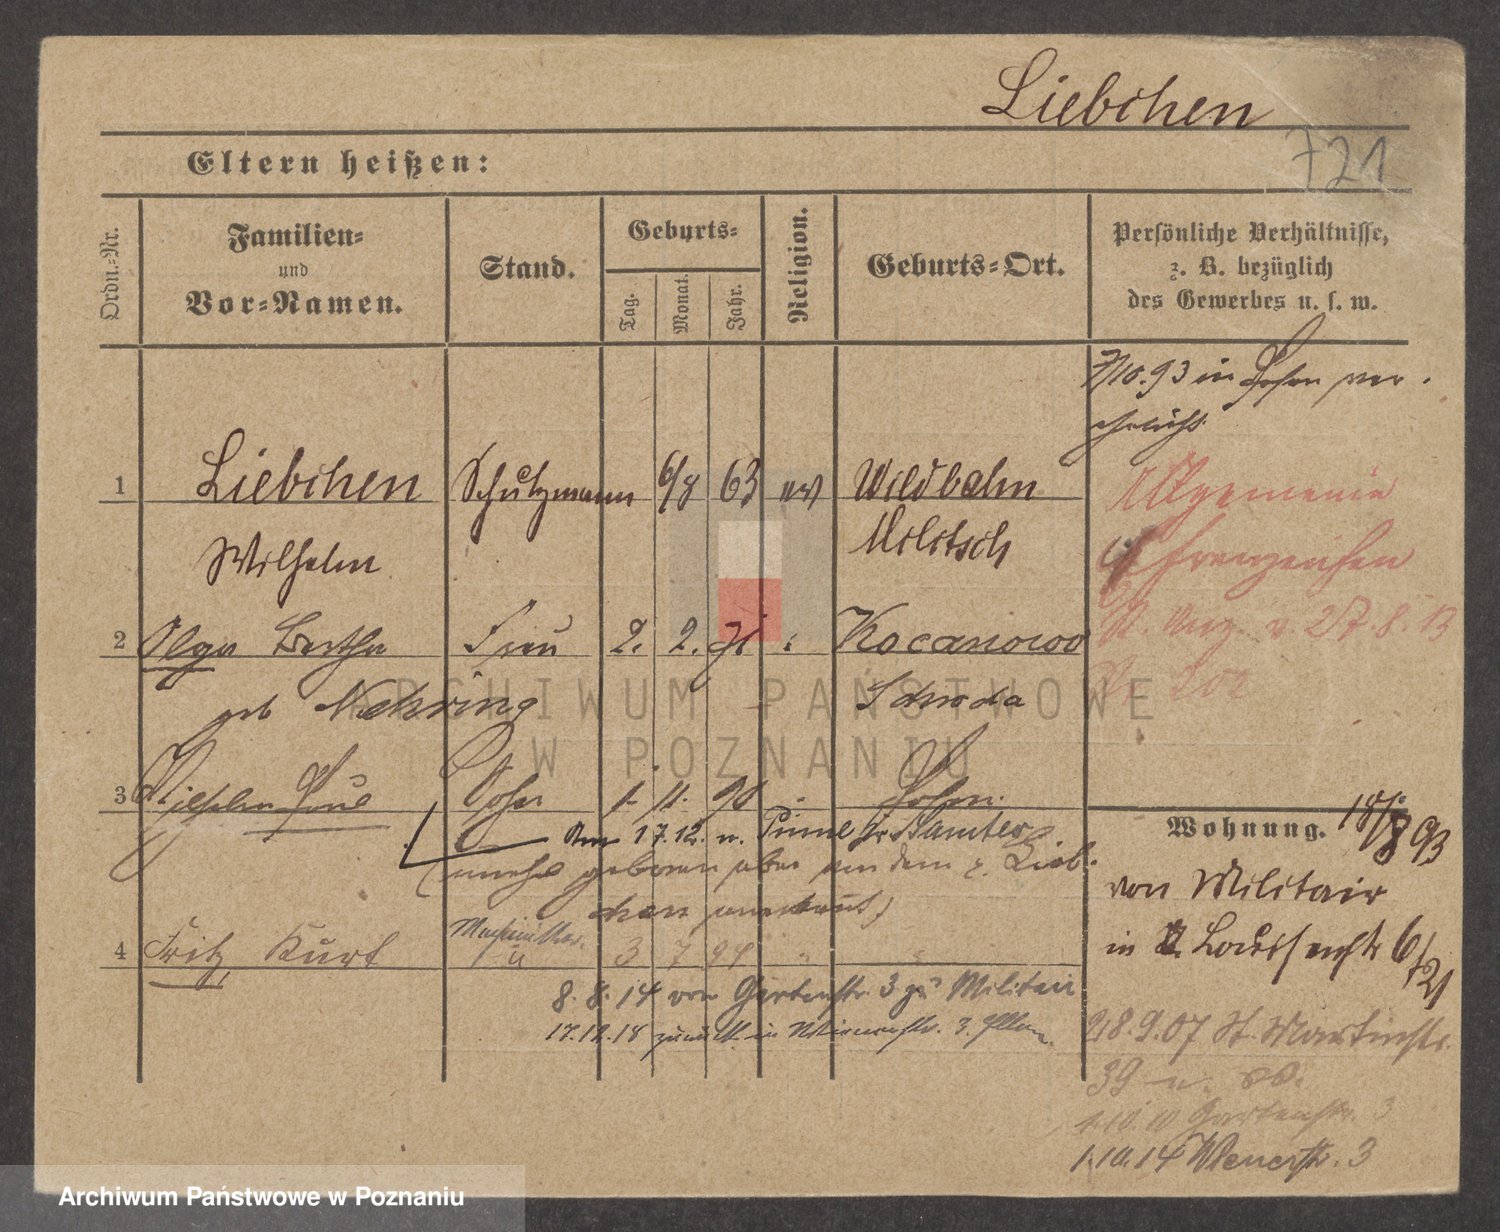 Liebchen
721
Eltern heißen:
Ordn.-Nr.
Familien-
und
Vor-Namen.
Stand.
Geburts-
Tag.
Monat.
Jahr.
Religion.
Geburts-Ort.
Persönliche Verhältnisse,
z. B. bezüglich
des Gewerbes u. s. w.
7/10.93 in Posen ver-
ehelicht
1 Liebchen Schutzmann 6/8 63 ev Wildbahn
Wilhelm Militsch
Allgemeine
Ehrenzeichen
27.8.13
2 Olga Bertha Frau 2. 2. 71 Kocanowo
geb Nehring Schroda
3 Wilhelm Paul Sohn 1. 11. 90 Posen
Am 17.12. in Pinne Kr. Samter
geboren aber von dem p. Lieb-
chen anerkannt)
4 Fritz Kurt 3 7 94 "
8.8.14 von Gartenstr. 3 zu Militair
17.12.18 zurück in 3.
Wohnung. 18/8 93
von Militair
in 6/21
28.9.07 St. Martinstr.
39
1.10.10 Gartenstr. 3
1.10.14 Wienerstr. 3
ARCHIWUM PAŃSTWOWE
W POZNANIU
Archiwum Państwowe w Poznaniu